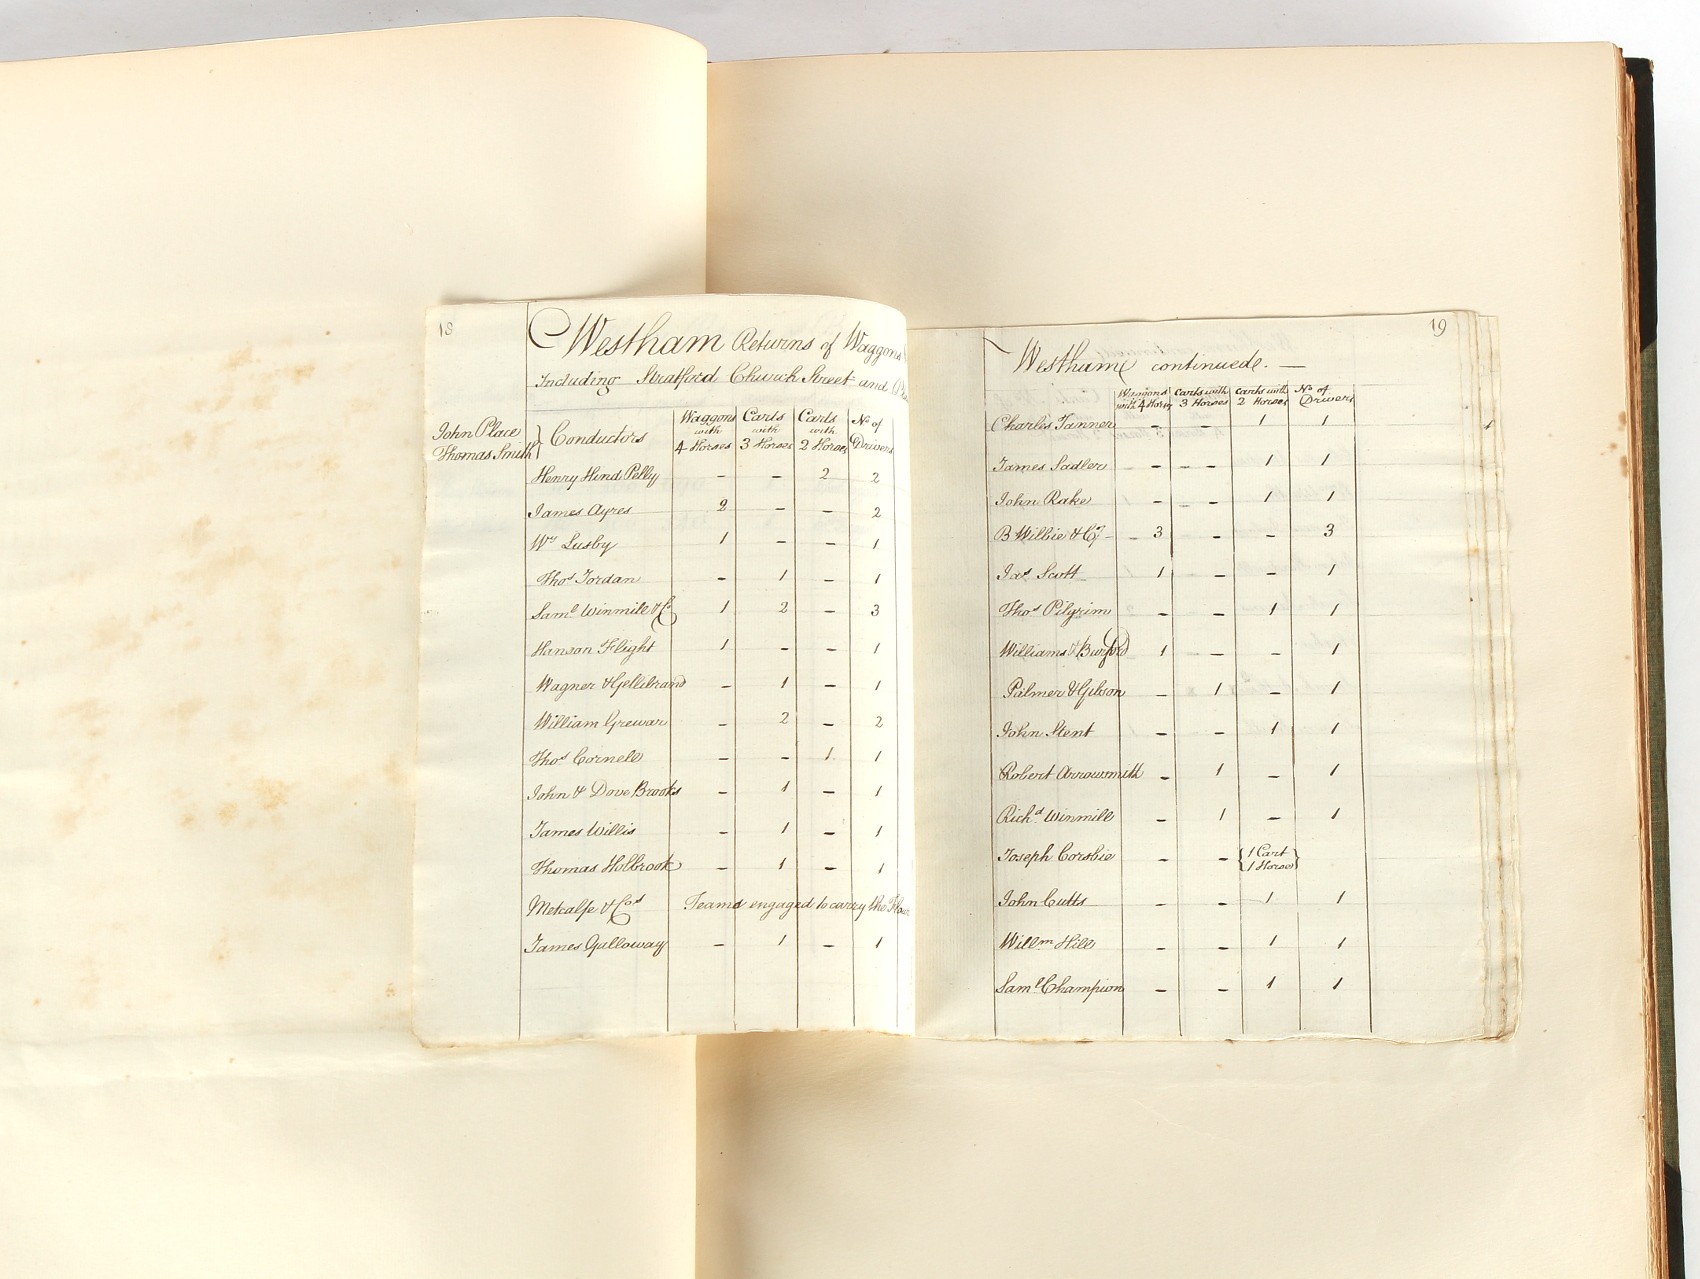 18
Westham Returns of Waggons
Including Stratford Church Street and
John Place
Thomas Smith } Conductors
Waggons with 4 Horses Carts with 3 Horses Carts with 2 Horses No. of Drivers
Henry Hind Pelly - - 2 2
James Ayres 2 - - 2
Wm Lusby 1 - - 1
Thos Jordan - 1 - 1
Saml Winmill & Co 1 2 - 3
Hanson Flight 1 - - 1
Wagner & Gellibrand - 1 - 1
William Grewar - 2 - 2
Thos Cornell - - 1 1
John & Dove Brooks - 1 - 1
James Willis - 1 - 1
Thomas Holbrook - 1 - 1
Metcalfe & Cos Teams engaged to carry the Flour
James Galloway - 1 - 1
19
Westham continued. —
Waggons with 4 Horses Carts with 3 Horses Carts with 2 Horses No. of Drivers
Charles Tanner - - 1 1
James Sadler - - 1 1
John Rake - - 1 1
B Willbie & Co - 3 - - 3
Jas Scott 1 - - 1
Thos Pilgrim - - 1 1
Williams & Burford 1 - - 1
Palmer & Gibson - 1 - 1
John Stent - - 1 1
Robert Arrowsmith - 1 - 1
Richd Winmill - 1 - 1
Joseph Corsbie - - {1 Cart 1 Horse}
John Cutts - - 1 1
Willm Hill - - 1 1
Saml Champion - - 1 1